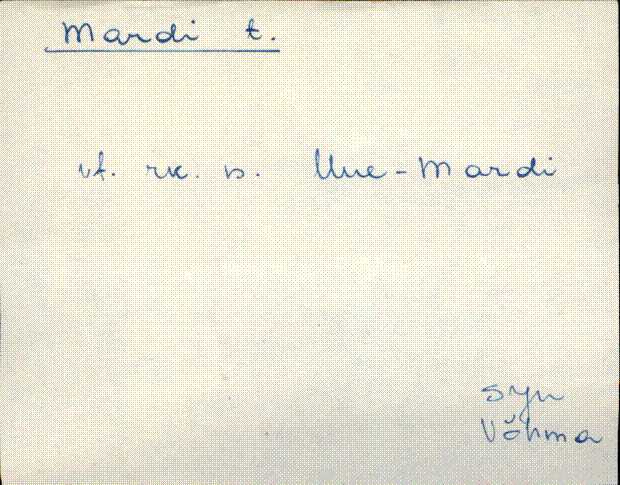 Mardi t.
vt. rk. s. Uue-Mardi
Syn
Võhma